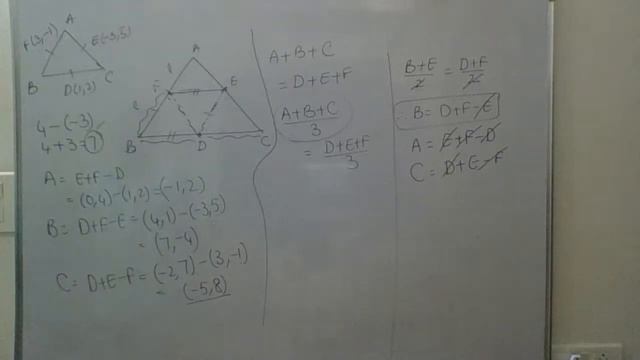 A
F(3,-1)
E(-3,5)
B
C
D(1,2)
4-(-3)
4+3=7
A
F
E
B
D
C
A = E+F-D
= (0,4)-(1,2)=(-1,2)
B = D+F-E = (4,1)-(-3,5)
= (7,-4)
C = D+E-F = (-2,7)-(3,-1)
= (-5,8)
A+B+C
= D+E+F
A+B+C
3
= D+E+F
3
B+E = D+F
2 2
B = D+F-E
A = E+F-D
C = D+E-F